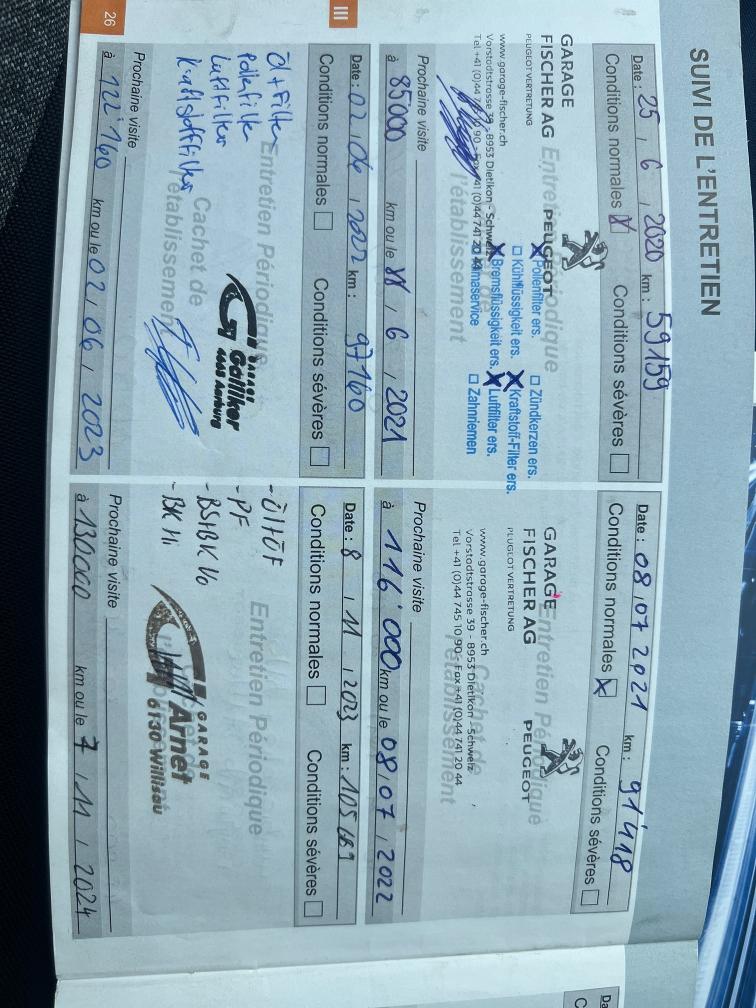 SUIVI DE L'ENTRETIEN
Date : 25 / 6 / 2020 km : 59159
Conditions normales ☒ Conditions sévères ☐
Entretien Périodique
Cachet de
l'établissement
GARAGE
FISCHER AG
PEUGEOT VERTRETUNG
PEUGEOT
www.garage-fischer.ch
Vorstadtstrasse 39 - 8953 Dietikon - Schweiz
☒ Pollenfilter ers. ☐ Zündkerzen ers.
☐ Kühlflüssigkeit ers. ☒ Kraftstoff-Filter ers.
☒ Bremsflüssigkeit ers. ☒ Luftfilter ers.
☐ Klimaservice ☐ Zahnriemen
Prochaine visite
à 85'000 km ou le / 6 / 2021
Date : 08 / 07 2021 km : 91'418
Conditions normales ☒ Conditions sévères ☐
Entretien Périodique
Cachet de
l'établissement
GARAGE
FISCHER AG
PEUGEOT VERTRETUNG
PEUGEOT
www.garage-fischer.ch
Vorstadtstrasse 39 - 8953 Dietikon - Schweiz
Tel +41 (0)44 745 10 90 - Fax +41 (0)44 741 20 44
Prochaine visite
à 116'000 km ou le 08 / 07 / 2022
III
Date : 02 / 06 / 2022 km : 97160
Conditions normales ☐ Conditions sévères ☐
Entretien Périodique
Cachet de
l'établissement
Öl + Filter
Pollefilter
Luftfilter
Kraftstofffilter
GARAGE
Galliker
4663 Aarburg
Prochaine visite
à 122'160 km ou le 02 / 06 / 2023
Date : 8 / 11 / 2023 km : 105
Conditions normales ☐ Conditions sévères ☐
Entretien Périodique
- Öl+ÖF
- PF
- BS+BK Vo
- BK Hi
GARAGE
Arnet
6130 Willisau
Prochaine visite
à 130000 km ou le 7 / 11 / 2024
26